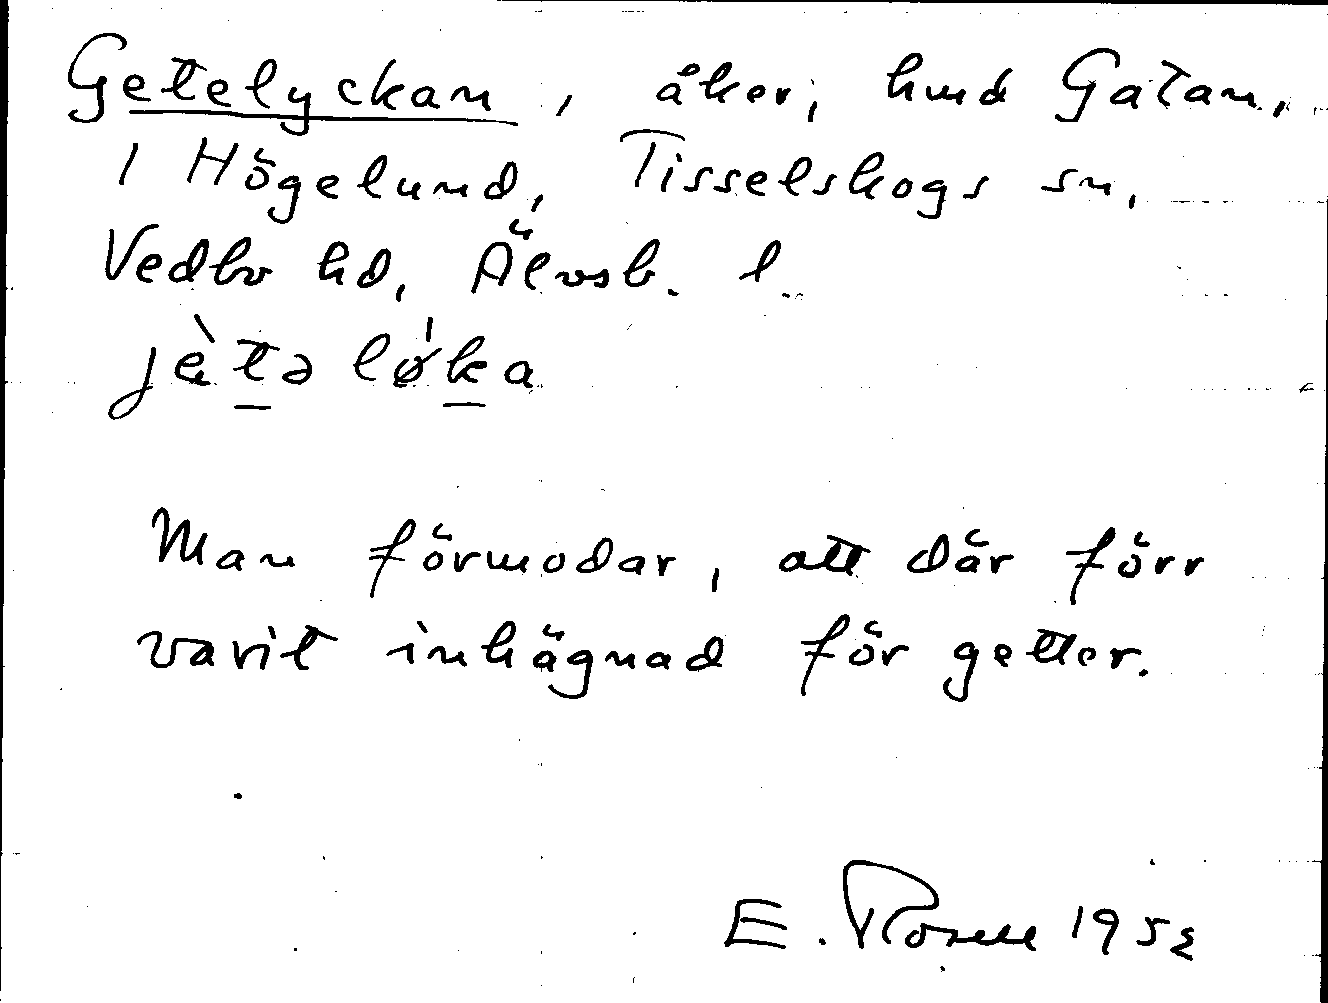 Getelyckan, åker, hmd Gatan,
1 Högelund, Tisselskogs sn,
Vedbo hd, Älvsb. l.
jètə løka
Man förmodar, att där förr
varit inhägnad för getter.
E. Rosell 1952